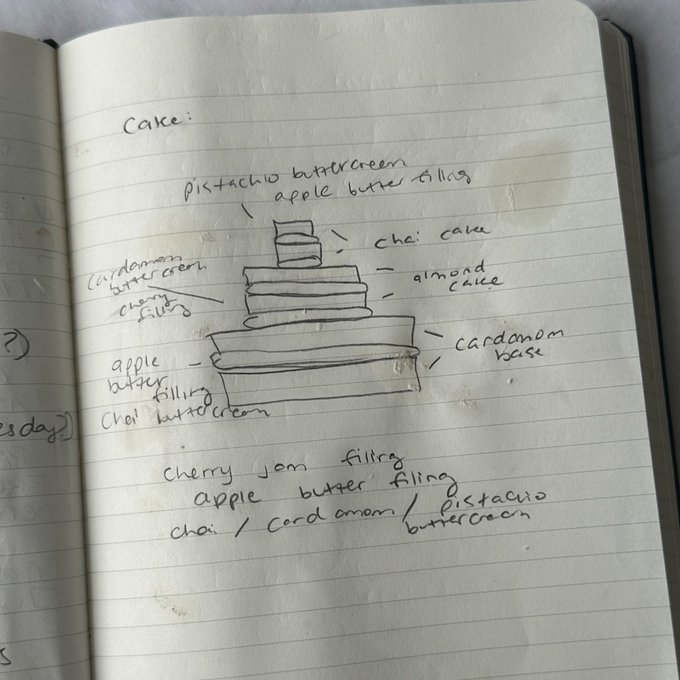 Cake:
pistachio buttercreen
apple butter filling
chai cake
cardamom
buttercreen
cherry
filling
almond
cake
cardamom
base
apple
butter
filling
Chai buttercreen
cherry jam filirg
apple butter filing
chai / cardamom / pistachio
buttercrean
?)
esday?)
s